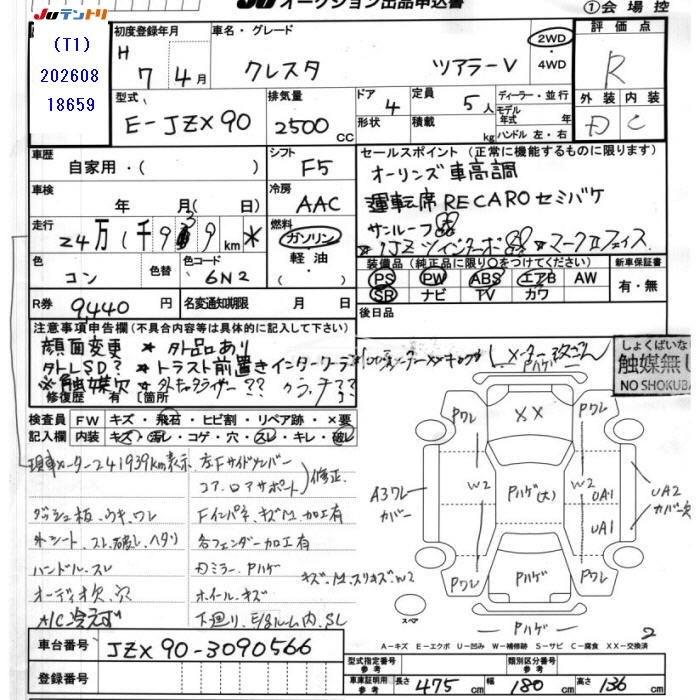 JUテントリ
JU オークション出品申込書
① 会場控
(T1)
202608
18659
初度登録年月
H 7年 4月
車名・グレード
クレスタ ツアラーV
2WD
・4WD
評価点
R
型式
E-JZX90
排気量
2500 CC
ドア 4
形状
定員 5人
積載 kg
ディーラー・並行
モデル
年式 年
ハンドル 左・右
外装 内装
D C
車歴
自家用・( )
シフト
F5
車検
年 月( 日)
冷房
AAC
走行
24万1千939km*
燃料
ガソリン
軽油
・( )
色
コン
色替
色コード
6N2
R券 9,440円
名変通知期限 月 日
セールスポイント (正常に機能するものに限ります)
オーリンズ車高調
運転席RECAROセミバケ
サンルーフ
*1JZツインターボ *マークIIフェイス
装備品(純正品に限り○をつけてください)
新車保証書
PS PW ABS エアB AW
SR ナビ TV カワ
有・無
後日品
注意事項申告欄(不具合内容等は具体的に記入して下さい)
顔面変更 * 外品あり
外LSD? * トラスト前置きインタークーラー
※触媒欠 * 外キャタライザー??
クラッチ??
修復歴 有 [箇所
メーター改ざん
しょくばいな
触媒無し
NO SHOKUBA
検査員
記入欄
FW キズ・飛石・ヒビ割・リペア跡・×要
内装 キズ・汚れ・コゲ・穴・スレ・キレ・破レ
現車メーター241939km表示
左Fサイドメンバー
コアロアサポート)修正
ダッシュ板、ウキ、ワレ
Fインパネ、キズM、加工有
外シート、スレ破レ、ヘタリ
各フェンダー加工有
ハンドル・スレ
Dミラー、Pハゲ
オーディオ欠、穴
ホイール・キズ
A/C冷えず
下廻り、E/gルーム内、SL
Pハゲ
Pワレ
XX
Pワレ
A3ワレ
カバー
W2
Pハゲ(大)
W2
UA1
UA1
UA2
カバー欠
キズ・M・スリキズW2
Pワレ
Pハゲ
Pワレ
スペア
Pハゲ
2
A-キズ E-エクボ U-凹み W-補修跡 S-サビ C-腐食 XX-交換済
車台番号 JZX90-3090566
登録番号
型式指定番号
参考
類別区分番号
参考
車庫証明用
参考
長さ 475cm
幅 180cm
高さ 136cm